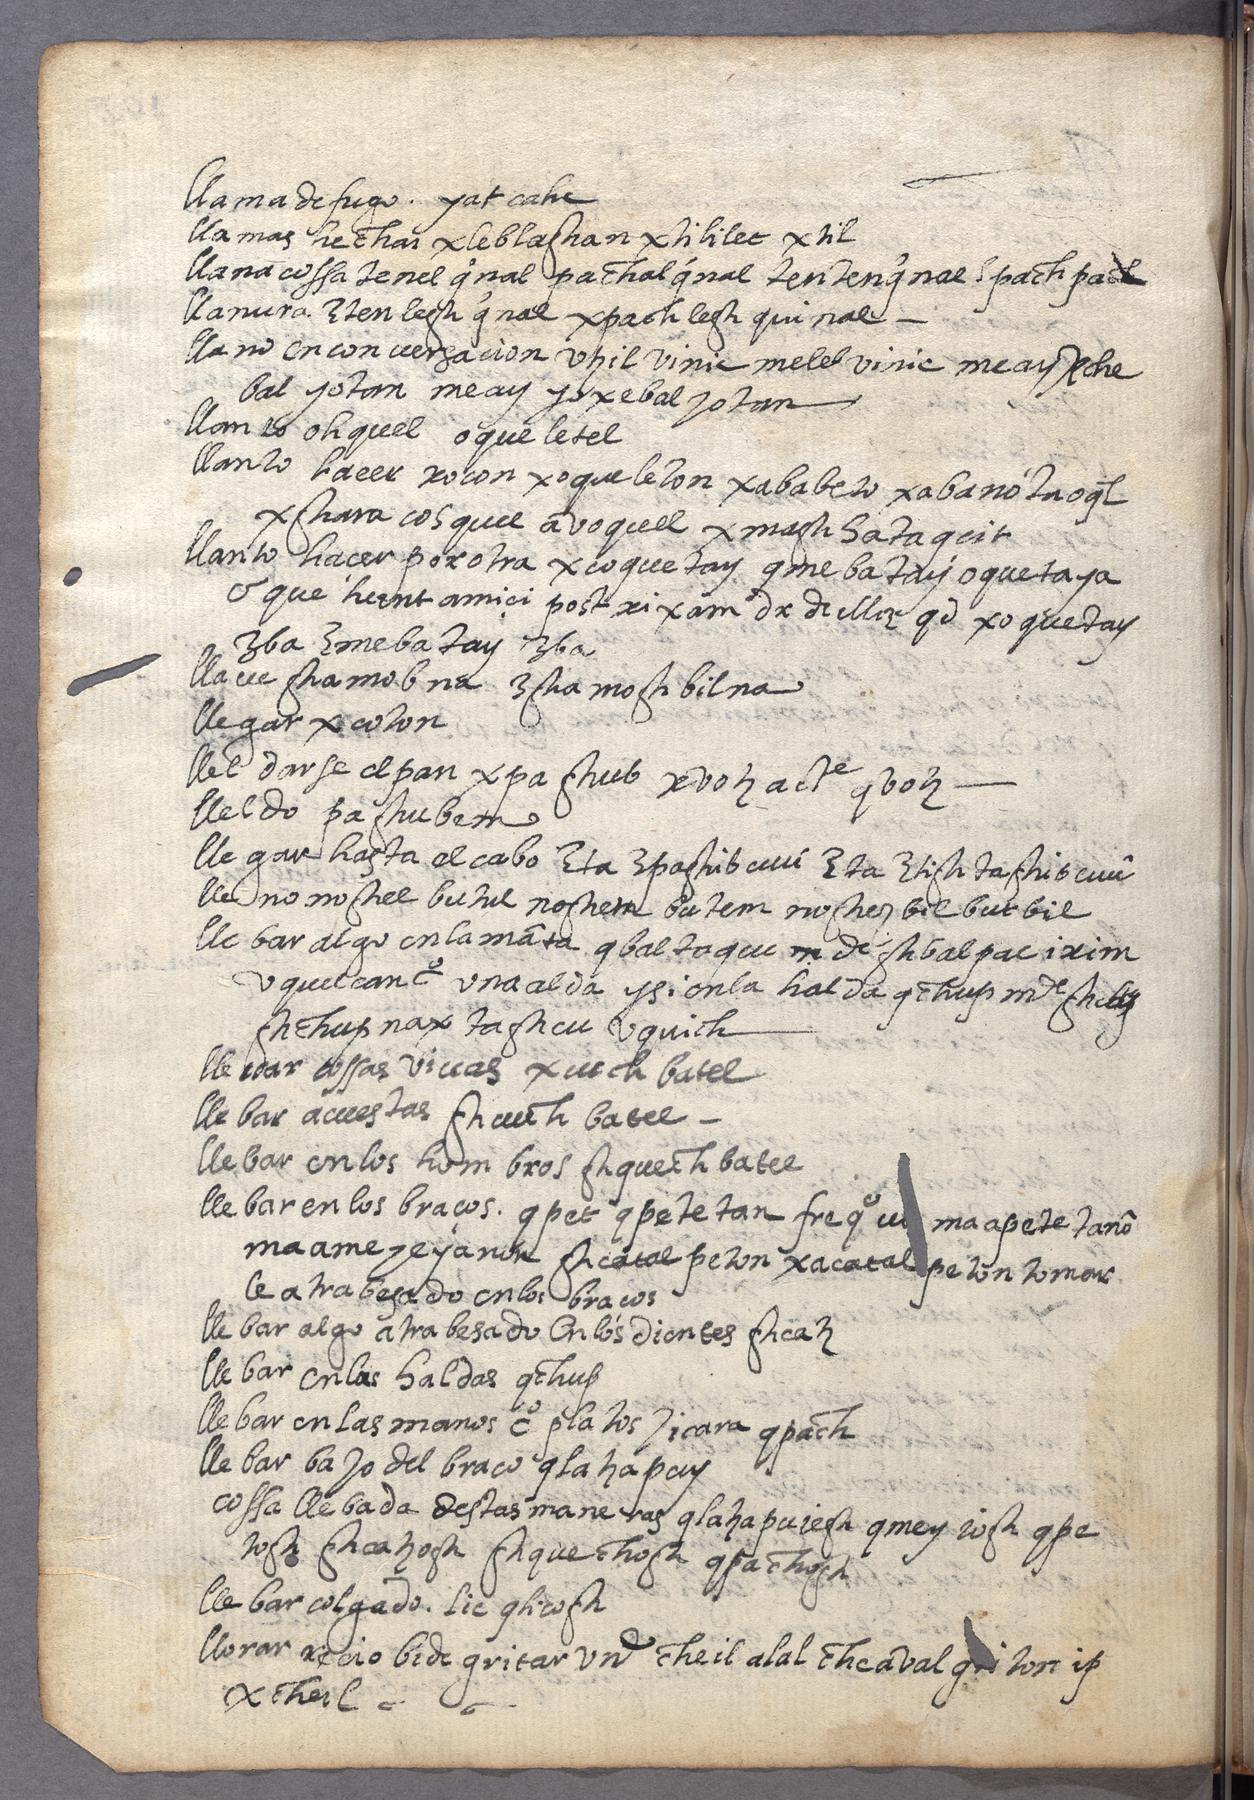 llama de fugo. yat cahc
llamas hechar xleblaghan xtililet xtil
llana cossa tenel q'nal pachal q'nal tentenq'nal l pach pach
llanura ztenlegh q'nal xpach legh quinal
llano en conversacion vtzil vinic melel vinic meay xche
bal yotan meay yxxebal yotan
llanto ohquel oqueletel
llanto hacer xocon xoqueleton xababeto xabano ta oq̃l
xghara cosquel avoquel xmagh hata qcit
llanto hacer por otra xcoquetay qmebatay oquetaya
o que hecint amici post
zba zmebatay zba
llave ghamobna zghamoghbilna
llegar xcoton
lleldarse el pan xpaghub
lleldo paghubem
llegar hasta el cabo zta zpaghib cuuî zta ztigh taghib cuuî
lleno noghel butul noghem butem noghezbil butbil
llebar algo en la mãta qbal taqcu mde ghbal pac ixim
vquelcan cº una alda y si en la halda qchup mde
ghchup nax taghcu vquich
llevar cossas vivas xcuch batel
llebar acuestas ghcuch batel
llebar en los hombros ghquech batel
llebar en los braços. qpet qpetetan freqº ma apete tanõ
ma ame ghcatal peton xacatal peton tomar
le atrabesado en los bracos
llebar algo atrabesado en los dientes ghcatz
llebar en las haldas qchup
llebar en las manos cº platos jicara qpach
llebar bajo del braco qlatzapuy
cossa llebada destas maneras qlatzapuiegh qmeyiogh qpe
togh ghcatzogh ghquechogh qpachogh
llebar colgado. lic qlicogh
llorar recio bide gritar vnd cheil alal chcaval ip
xcheil